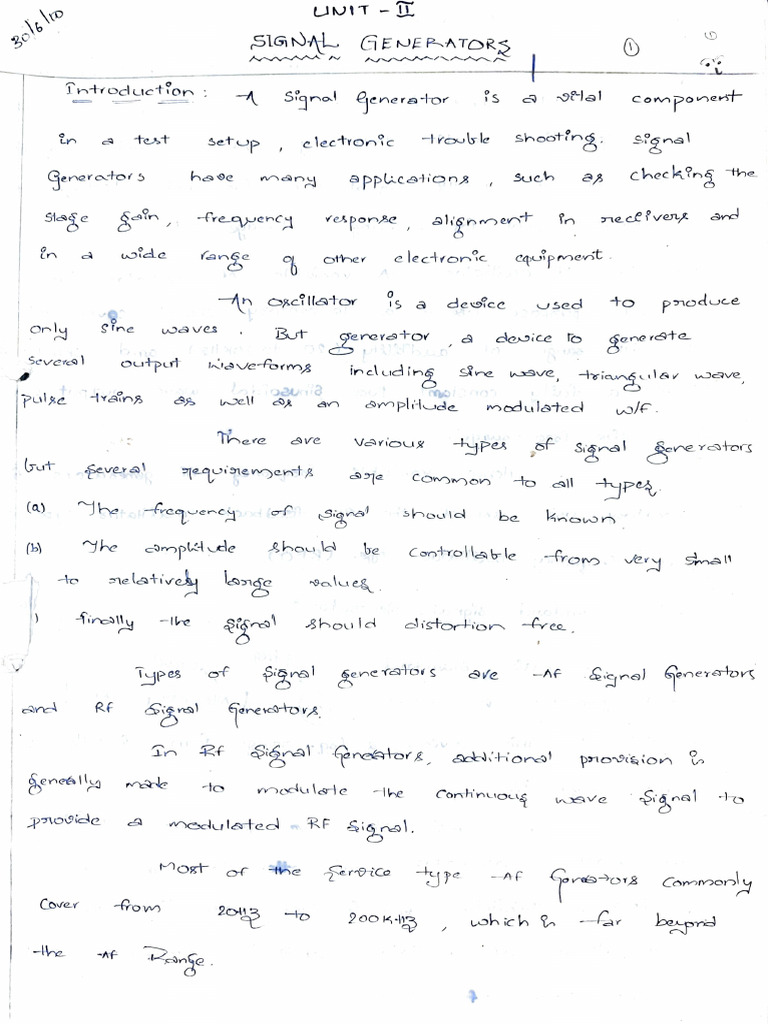 30/6/10
UNIT - II
SIGNAL GENERATORS
①
①
Introduction : A Signal Generator is a vital component
in a test setup , electronic trouble shooting. Signal
Generators have many applications , such as checking the
stage gain, frequency response, alignment in receivers and
in a wide range of other electronic equipment.
An oscillator is a device used to produce
only sine waves . But generator , a device to generate
several output waveforms including sine wave, triangular wave,
pulse trains as well as an amplitude modulated w/f.
There are various types of signal generators
but several requirements are common to all types.
(a) The frequency of signal should be known
(b) The amplitude should be controllable from very small
to relatively large values.
) finally the signal should distortion free.
Types of signal generators are Af Signal Generators
and Rf Signal Generators.
In Rf Signal Generators, additional provision is
generally made to modulate the continuous wave signal to
provide a modulated RF signal.
Most of the Service type Af Generators commonly
cover from 20Hz to 200KHz , which is far beyond
the Af Range.